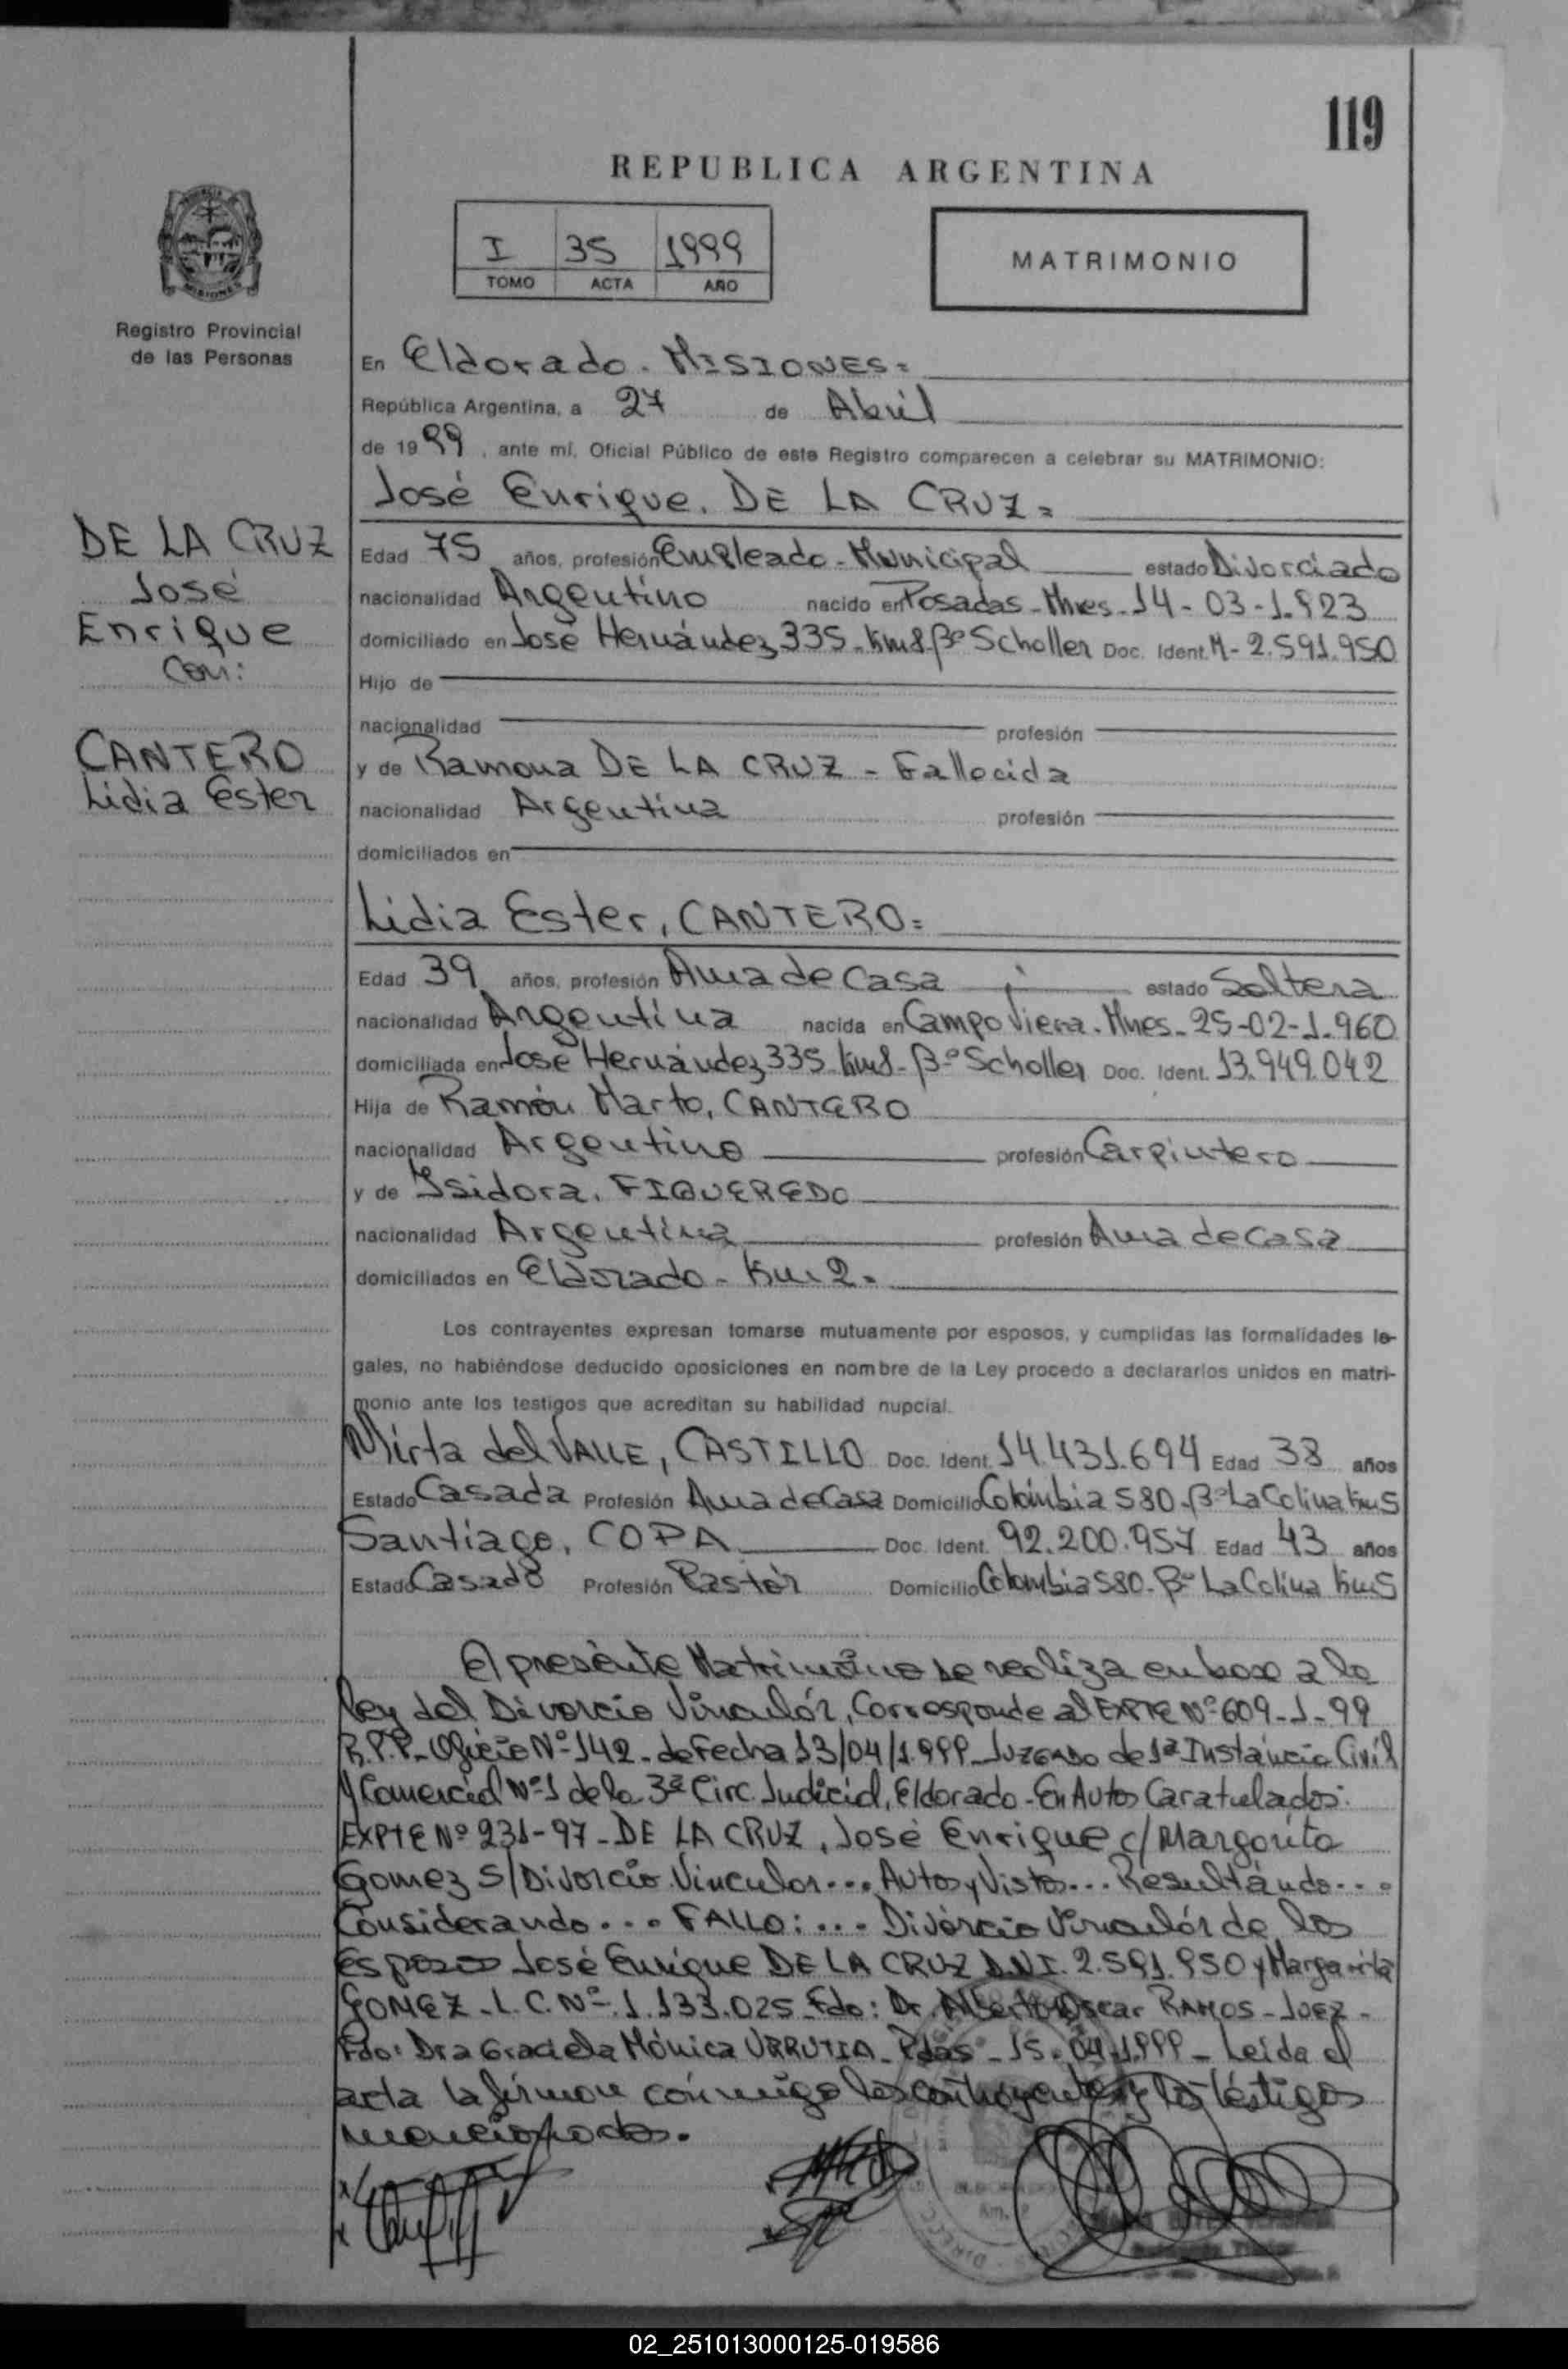 119
REPUBLICA ARGENTINA
I 35 1999
TOMO ACTA AÑO
MATRIMONIO
MISIONES
Registro Provincial
de las Personas
En Eldorado. MISIONES=
República Argentina, a 27 de Abril
de 1999, ante mí, Oficial Público de este Registro comparecen a celebrar su MATRIMONIO:
José Enrique. DE LA CRUZ=
DE LA CRUZ
José
Enrique
Con:
CANTERO
Lidia Ester
Edad 75 años, profesión Empleado - Municipal estado Divorciado
nacionalidad Argentino nacido en Posadas - Mnes - 14 - 03 - 1.923
domiciliado en José Hernández 335 - Km 8. Bº Scholler Doc. Ident. M - 2.591.950
Hijo de
nacionalidad profesión
y de Ramona DE LA CRUZ - Fallecida
nacionalidad Argentina profesión
domiciliados en
Lidia Ester, CANTERO=
Edad 39 años, profesión Ama de Casa estado Soltera
nacionalidad Argentina nacida en Campo Viera. Mnes - 25-02-1.960
domiciliada en José Hernández 335 Km 8 - Bº Scholler Doc. Ident. 13.949.042
Hija de Ramón Marto, CANTERO
nacionalidad Argentino profesión Carpintero
y de Isidora, FIGUEREDO
nacionalidad Argentina profesión Ama de Casa
domiciliados en Eldorado - Km 2 =
Los contrayentes expresan tomarse mutuamente por esposos, y cumplidas las formalidades le-
gales, no habiéndose deducido oposiciones en nombre de la Ley procedo a declararlos unidos en matri-
monio ante los testigos que acreditan su habilidad nupcial.
Mirta del VALLE, CASTILLO Doc. Ident. 14.431.694 Edad 38 años
Estado Casada Profesión Ama de Casa Domicilio Colombia 580 - Bº La Colina Km 5
Santiago, COPA Doc. Ident. 92.200.957 Edad 43 años
Estado Casado Profesión Pastor Domicilio Colombia 580 - Bº La Colina Km 5
El presente Matrimonio se realiza en base a la
Ley del Divorcio Vincular, Corresponde al EXPTE Nº 609 - 1 - 99
R.P.P - Oficio Nº 142 - de Fecha 13/04/1.999 - JUZGADO de 1ª Instancia Civil
y Comercial Nº 1 de la 3ª Circ. Judicial, Eldorado - En Autos Caratulados:
EXPTE Nº 231-97 - DE LA CRUZ, José Enrique c/ Margarita
Gomez S/ Divorcio Vincular... Autos y Vistos... Resultando...
Considerando... FALLO:... Divorcio Vincular de los
esposos José Enrique DE LA CRUZ D.N.I. 2.591.950 y Margarita
GOMEZ - L.C. Nº 1.133.025 - Fdo: Dr. Alberto Oscar RAMOS - Juez -
Fdo: Dra Graciela Mónica URRUTIA - Pdas - 15 - 04 - 1.999 - Leida el
acta la firman conmigo los contrayentes y los testigos
mencionados.
02_251013000125-019586